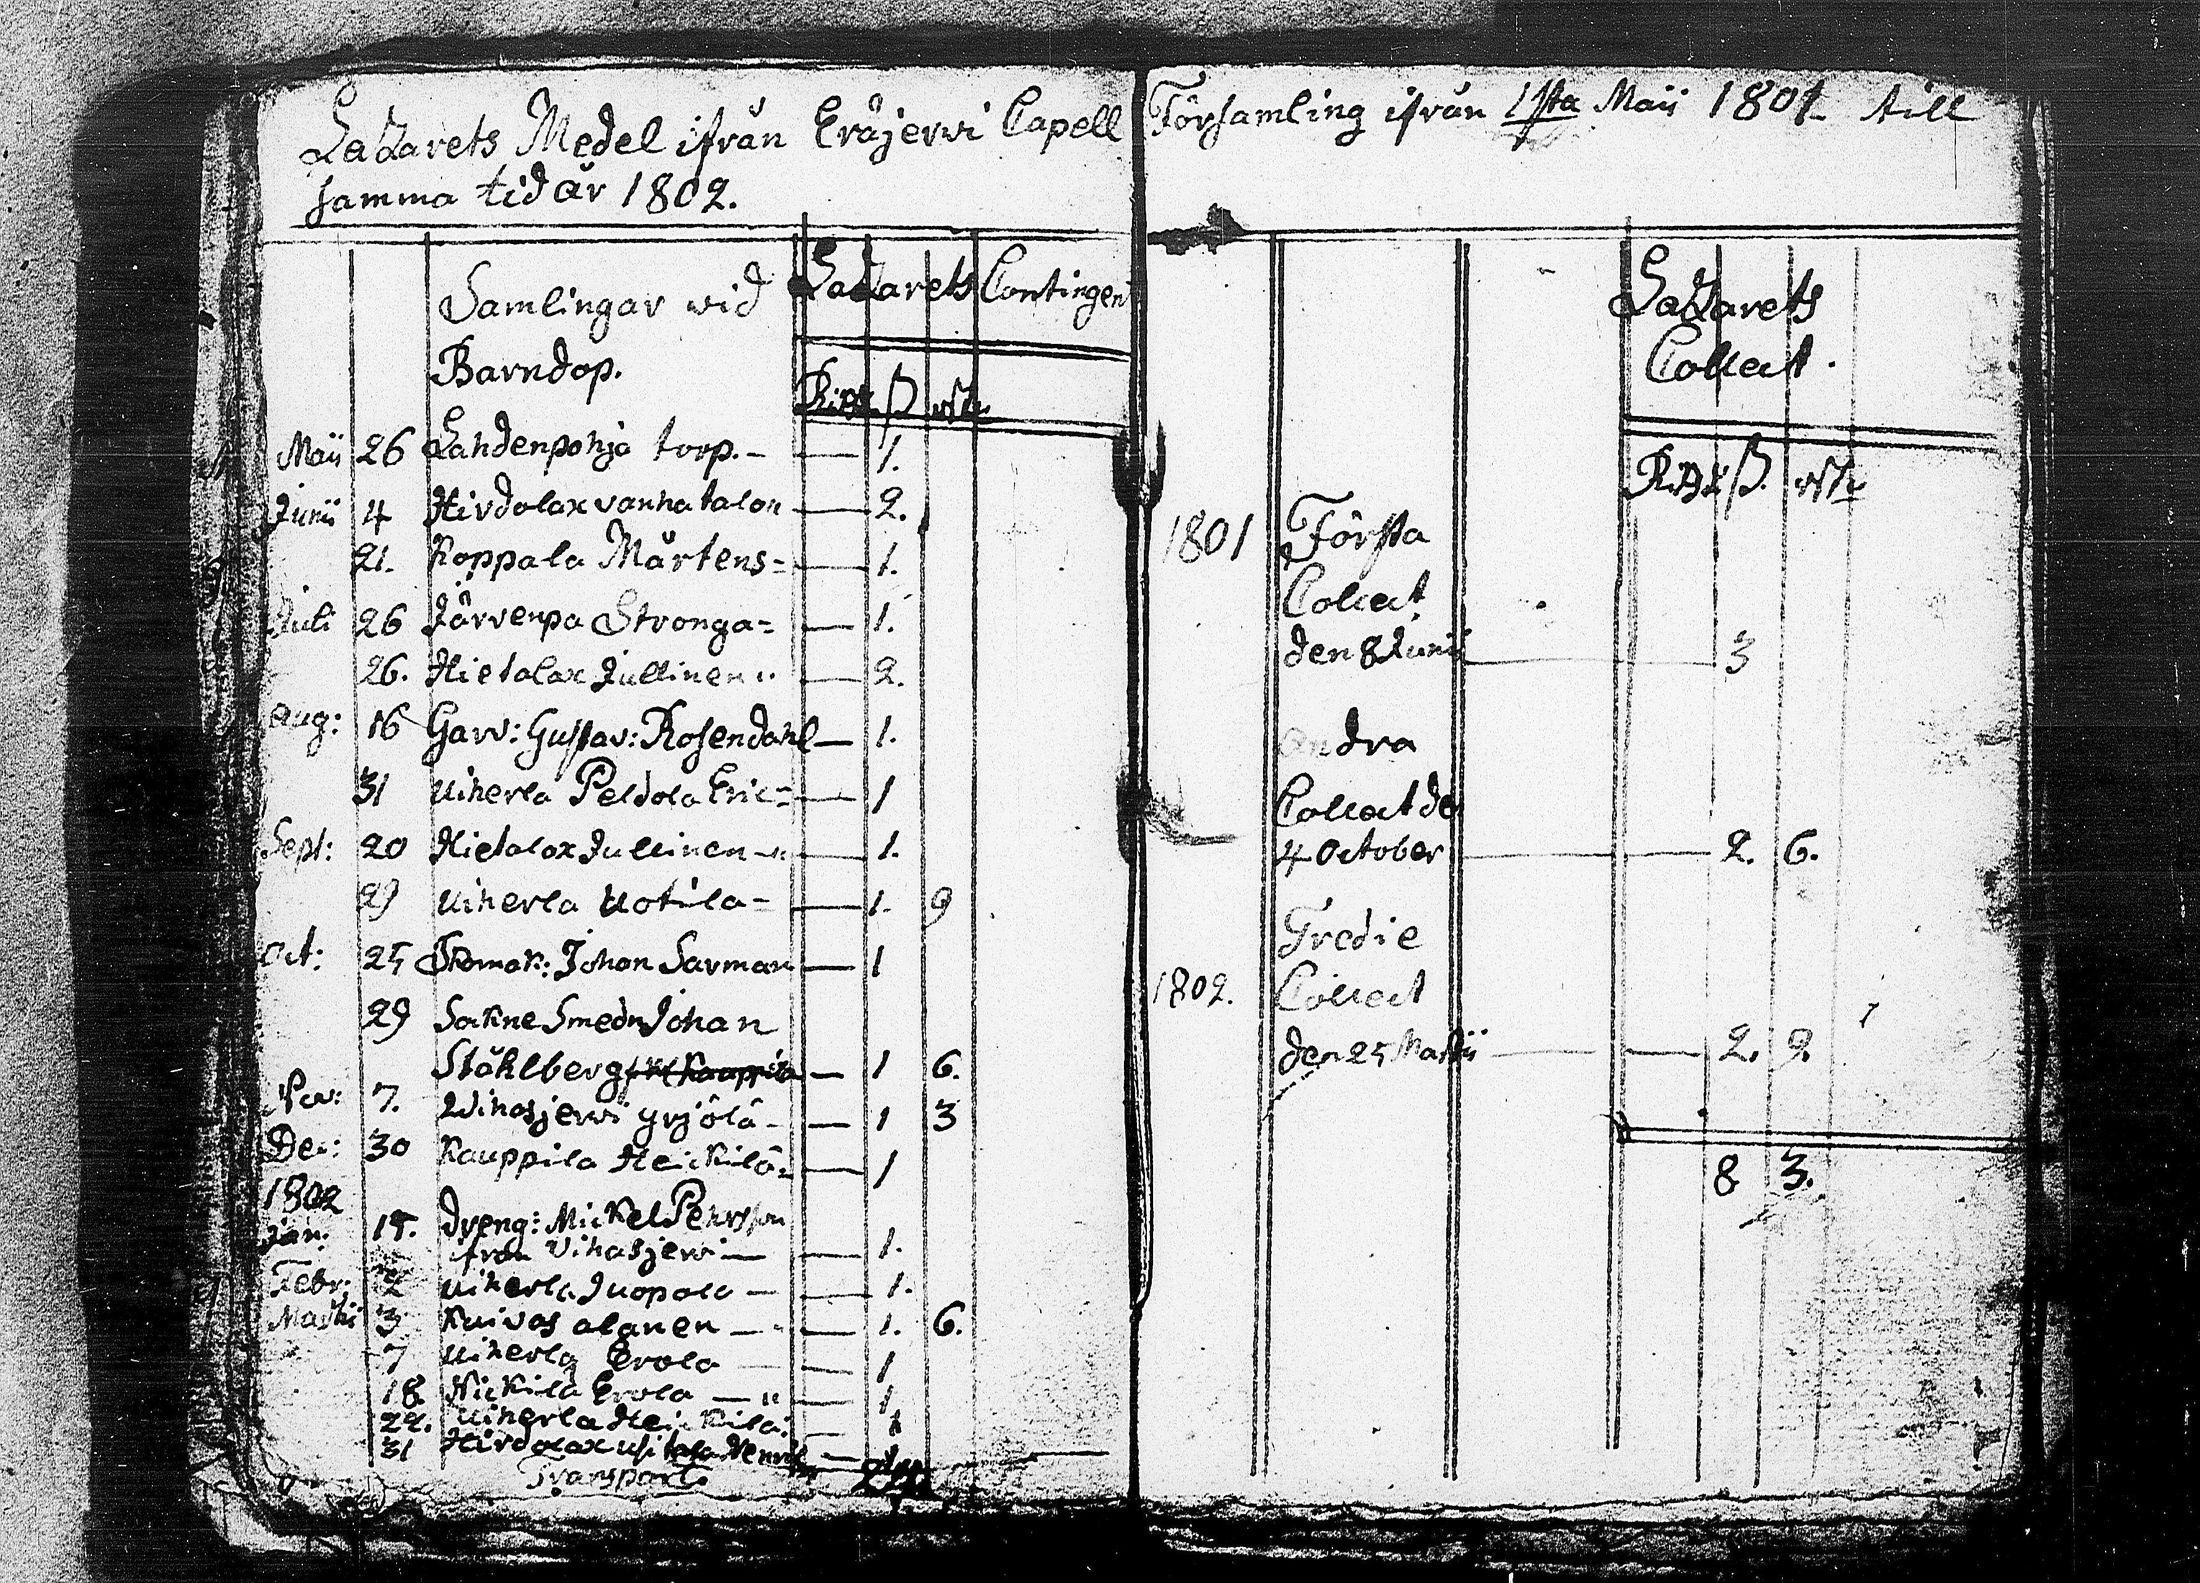 Lazarets Medel ifrån Eräjerwi Capell Församling ifrån 1sta Maij 1801 till
samma tid år 1802.
Samlingar wid
Barndop.
Lazarets Contingen
Rdr ß rst.
Maij 26 Lahdenpohja torp. — 1.
Junii 4 Hirdolax vanhatalon — 2.
21. Koppala Mårtens= — 1.
Juli 26 Järvenpa Stronga= — 1.
26. Hietalax Jullinen — 2.
Aug: 16 Garv: Gustav: Rosendahl — 1.
31 Uiherla Peldola Eric= — 1
Sept: 20 Hietalax Jullinen — 1.
29 Uiherla Uotila= — 1. 9
Oct: 25 Skomak: Johan Sarman — 1
29 Sockne Smedn Johan
Ståhlberg — 1 6.
Nov: 7. Wihasjerwi yrjölä — 1 3
Dec: 30 Kauppila Heickilä= — 1
1802
Jan: 15. Dreng: Mickel Pehrsson
från Vihasjerwi — 1.
Febr: 2 Uiherla Juopola — 1.
Martii 3 Kuivas alanen — 1. 6.
7 Uiherla Erola — 1
18 Nickilä Erola — 1
22. Uiherla Heickilä: — 1
31 Hirdolax
Transport
Lazarets
Collect.
Rdr ß. rst.
1801 Första
Collect
den 8 Junii — 3
Andra
Collect de
4 October — 2. 6.
Tredie
1802. Collect
den 25 Martii — 2. 9.
8 3.